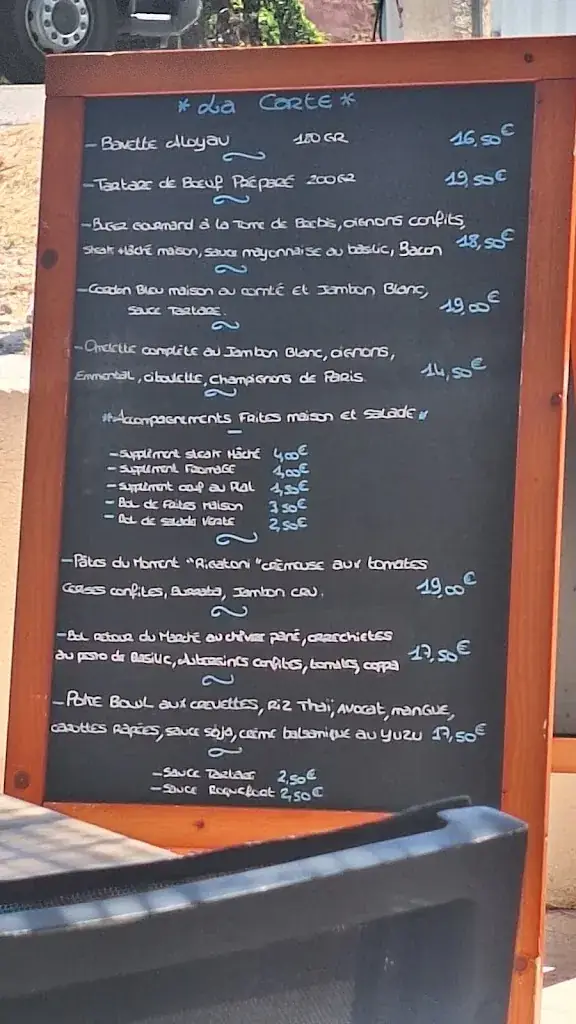 * La Carte *
- Bavette Aloyau 180 GR 16,50€
- Tartare de Boeuf Préparé 200GR 19,50€
- Burger Gourmand à la Tome de Brebis, oignons confits,
steak Hâché maison, sauce mayonnaise au basilic, Bacon 18,50€
- Cordon Bleu maison au comté et Jambon Blanc,
sauce Tartare. 19,00€
- Omelette complète au Jambon Blanc, oignons,
Emmental, ciboulette, champignons de Paris. 14,50€
* Accompagnements Frites maison et salade *
- Supplément steak Hâché 4,00€
- Supplément Fromage 1,00€
- Supplément oeuf au Plat 1,50€
- Bol de Frites maison 3,50€
- Bol de salade Verte 2,50€
- Pâtes du Moment "Rigatoni" crémeuse aux tomates
Cerises confites, Burrata, Jambon cru. 19,00€
- Bol retour du Marché au chèvre pané, orecchietes
au pesto de Basilic, Aubergines confites, tomates, coppa 17,50€
- Poke Bowl aux crevettes, Riz Thaï, avocat, mangue,
carottes rapées, sauce soja, crème balsamique au yuzu 17,50€
- Sauce Tartare 2,50€
- Sauce Roquefort 2,50€